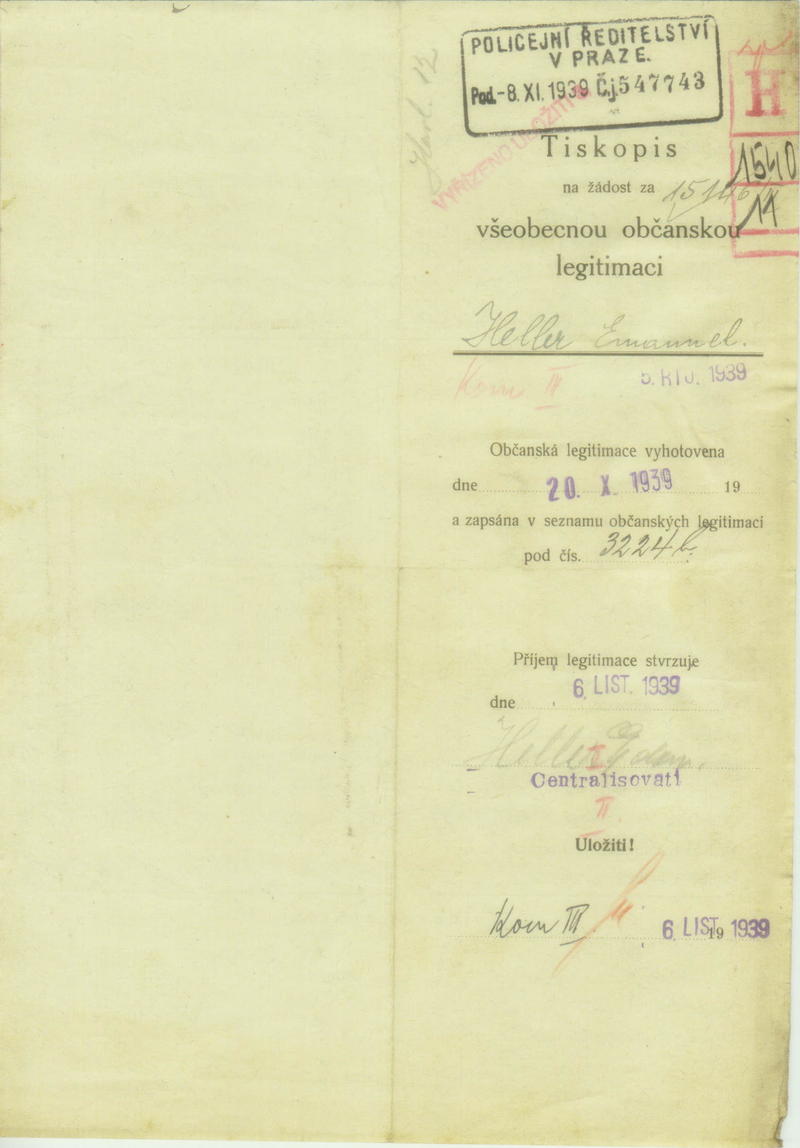 POLICEJNÍ ŘEDITELSTVÍ
V PRAZE.
Pod.-8. XI. 1939 Č.j.547743
H
VYŘÍZENO
Tiskopis
1540
na žádost za
11
všeobecnou občanskou
legitimaci
Heller Emanuel.
Kom III
5. ŘÍJ. 1939
Občanská legitimace vyhotovena
dne 20. X. 1939 19
a zapsána v seznamu občanských legitimací
pod čís. 3224
Příjem legitimace stvrzuje
6. LIST. 1939
dne
Heller
I
Centralisovati
II
Uložiti!
Kom III 6. LIST. 19 1939